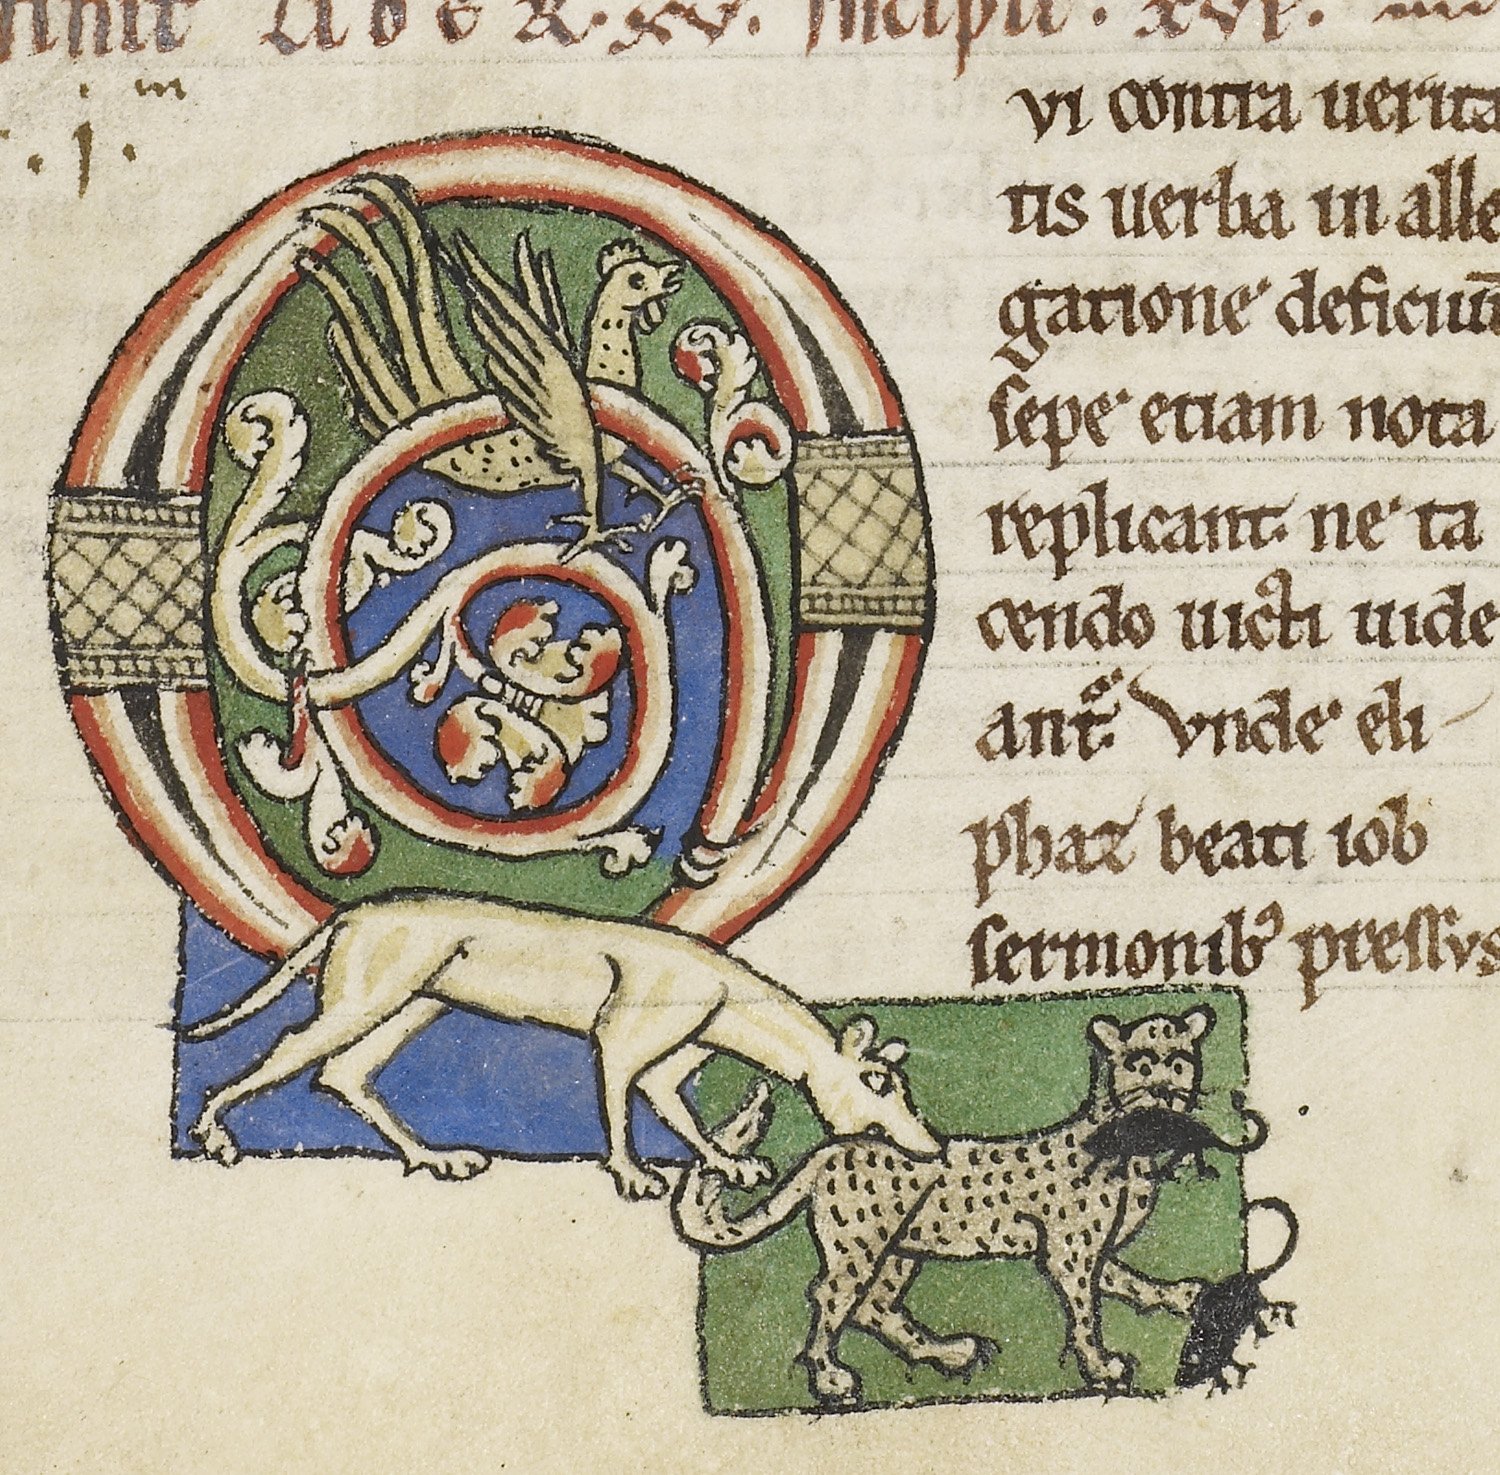 LIBER .XV. Incipit .XVI.
.j.
vi contra uerita
tis uerba in alle
gatione deficiūt
sepe etiam nota
replicant. ne ta
cendo uicti uide
antr̄. Vnde eli
phaz beati iob
sermonibꝰ pressus